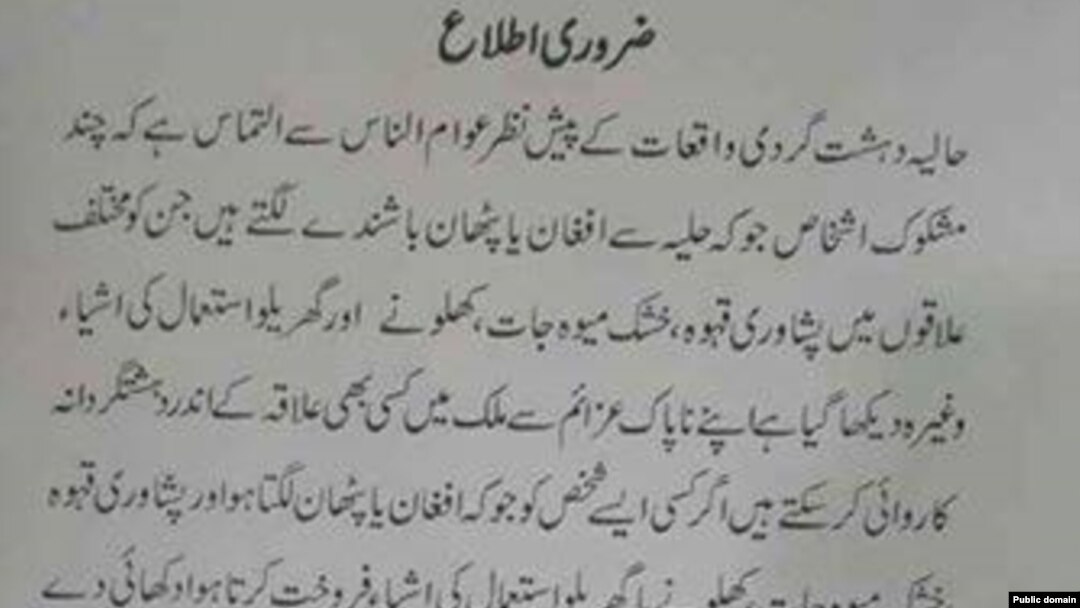 ضروری اطلاع
حالیہ دہشت گردی واقعات کے پیش نظر عوام الناس سے التماس ہے کہ چند
مشکوک اشخاص جو کہ حلیہ سے افغان یا پٹھان باشندے لگتے ہیں جن کو مختلف
علاقوں میں پشاوری قہوہ، خشک میوہ جات، کھلونے اور گھریلو استعمال کی اشیاء
وغیرہ دیکھا گیا ہے اپنے ناپاک عزائم سے ملک میں کسی بھی علاقہ کے اندر دہشتگردانہ
کاروائی کر سکتے ہیں اگر کسی ایسے شخص کو جو کہ افغان یا پٹھان لگتا ہو اور پشاوری قہوہ
خشک میوہ جات کھلونے یا گھریلو استعمال کی اشیاء فروخت کرتا ہوا دکھائی دے
Public domain